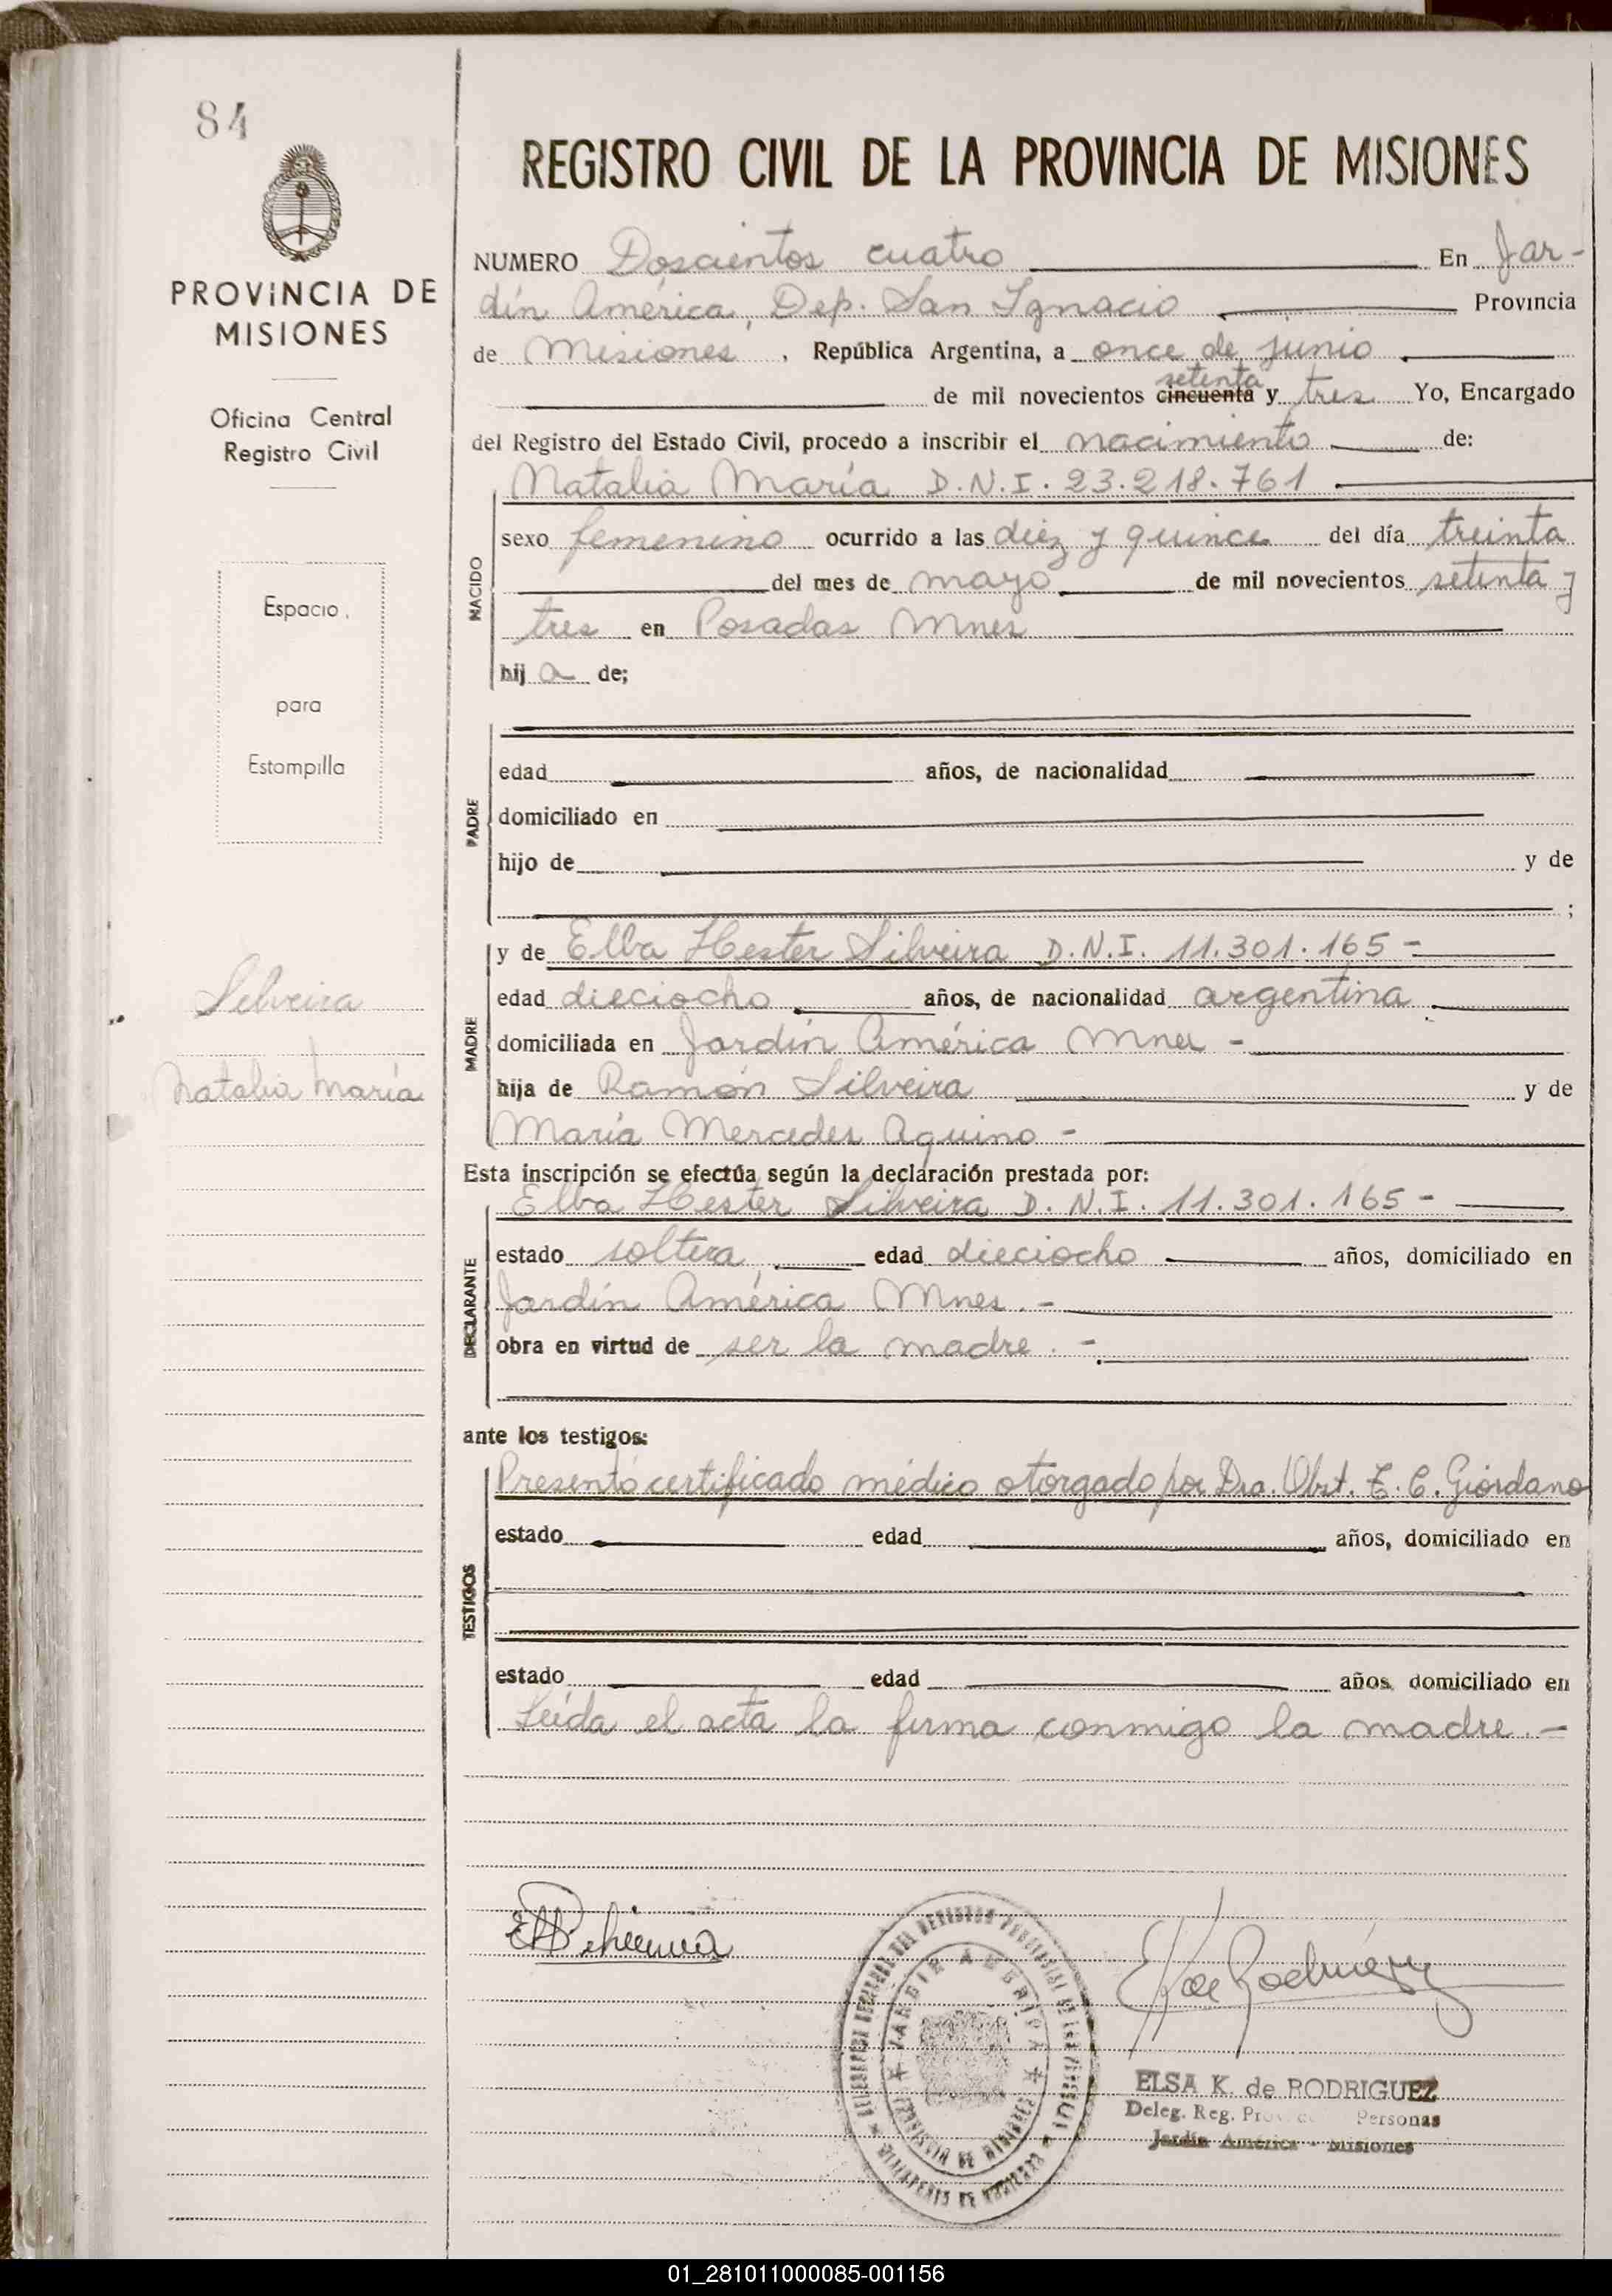 84
PROVINCIA DE
MISIONES
Oficina Central
Registro Civil
Espacio
para
Estampilla
Silveira
Natalia María
REGISTRO CIVIL DE LA PROVINCIA DE MISIONES
NUMERO Doscientos cuatro En Jar-
dín América, Dep. San Ignacio Provincia
de Misiones, República Argentina, a once de junio
setenta
de mil novecientos cincuenta y tres Yo, Encargado
del Registro del Estado Civil, procedo a inscribir el nacimiento de:
Natalia María D.N.I. 23.218.761
NACIDO
sexo femenino ocurrido a las diez y quince del día treinta
del mes de mayo de mil novecientos setenta y
tres en Posadas Mnes
hij a de;
PADRE
edad años, de nacionalidad
domiciliado en
hijo de y de
;
MADRE
y de Elba Hester Silveira D.N.I. 11.301.165 -
edad dieciocho años, de nacionalidad argentina
domiciliada en Jardín América Mnes -
hija de Ramón Silveira y de
María Mercedes Aquino -
Esta inscripción se efectúa según la declaración prestada por:
DECLARANTE
Elba Hester Silveira D.N.I. 11.301.165 -
estado soltera, edad dieciocho años, domiciliado en
Jardín América Mnes. -
obra en virtud de ser la madre. -
ante los testigos:
TESTIGOS
Presentó certificado médico otorgado por Dra. Obst. E. C. Giordano
estado edad años, domiciliado en
estado edad años, domiciliado en
Leída el acta la firma conmigo la madre. -
JARDIN AMERICA
PROVINCIA DE MISIONES
E K de Rodríguez
ELSA K. de RODRIGUEZ
Deleg. Reg. Personas
Jardín América - Misiones
01_281011000085-001156